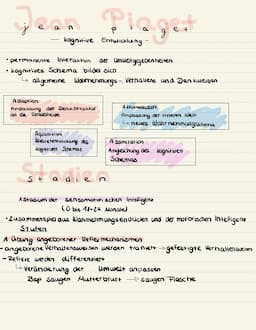 Jean Piaget
jean piaget
kognitive Entwicklung
• permanente Interaktion der Umweltgegebenheiten
• kognitives Schema bildet sich
↳ allgemeine Wahrnehmungs-, Verhaltens und Denkweisen
Adaption
Anpassung der Denkstruktur
an die Umweltreize
Akkomodation
Anpassung der inneren Welt
→ neues Wahrnehmungsschema
kognitiven Schemas
Assimilation
Angleichung des kognitiven
Schemas
Stadien
Stadien
1. Stadium der sensomotorischen Intelligenz
(0 bis 18-24 Monate)
- Zusammenspiel aus Wahrnehmungseindrücken und der motorischen Intelligenz
Stufen
1. Übung angeborener Reflexmechanismen
- angeborene Verhaltensweisen werden trainiert → gefestigte Verhaltensweisen
- Reflexe werden differenziert
↳ Veränderung der Umwelt anpassen
Bsp Saugen Mutterbrust → saugen Flasche